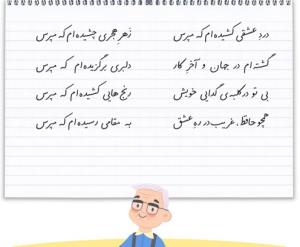 درد عشقی کشیده‌ام که مپرس زهر هجری چشیده‌ام که مپرس
گشته‌ام در جهان و آخر کار دلبری برگزیده‌ام که مپرس
بی تو در کلبه‌ی گدایی خویش رنج‌هایی کشیده‌ام که مپرس
همچو حافظ، غریب در ره عشق به مقامی رسیده‌ام که مپرس